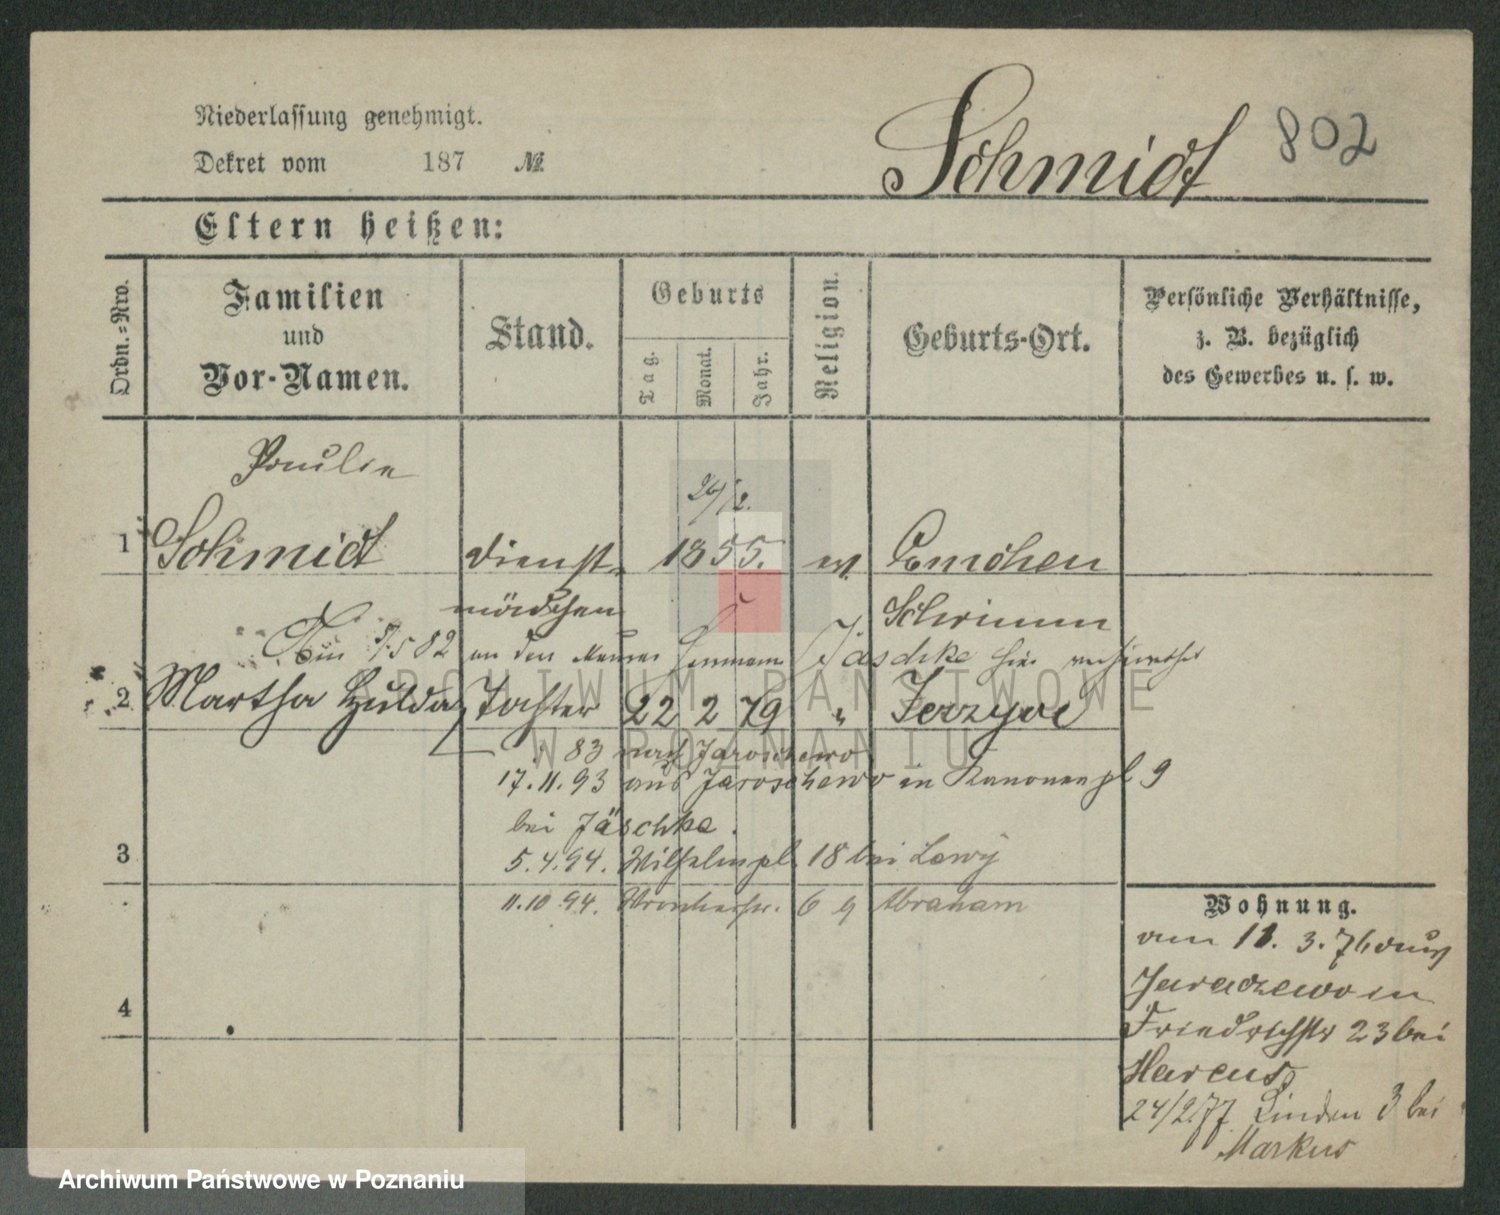 Niederlassung genehmigt.
Dekret vom 187 №
Schmidt 802
Eltern heißen:
Ordn.-Nro.
Familien
und
Vor-Namen.
Stand.
Geburts
Tag.
Monat.
Jahr.
Religion.
Geburts-Ort.
Persönliche Verhältnisse,
z. B. bezüglich
des Gewerbes u. s. w.
Paulin
26/2.
1 Schmidt Dienst- 1855. ev. Emchen
mädchen Schrimm
82 an den Maurer Hermann Jäschke hier verheirathet
2 Martha Hulda, Tochter 22 2 79 " Jerzyce
83 nach Jaroschewo
17.11.93 aus Jaroschewo in Kanonenpl 9
bei Jäschke.
3 5.4.94. Wilhelmspl. 18 bei Lewy
11.10 94. Wronkerstr. 6 Abraham
Wohnung.
am 11. 3. 76 aus
Jaraczewo in
Friedrichstr 23 bei
Marcus
24/2.77 Linden 3 bei
Markus
4
ARCHIWUM PAŃSTWOWE
W POZNANIU
Archiwum Państwowe w Poznaniu